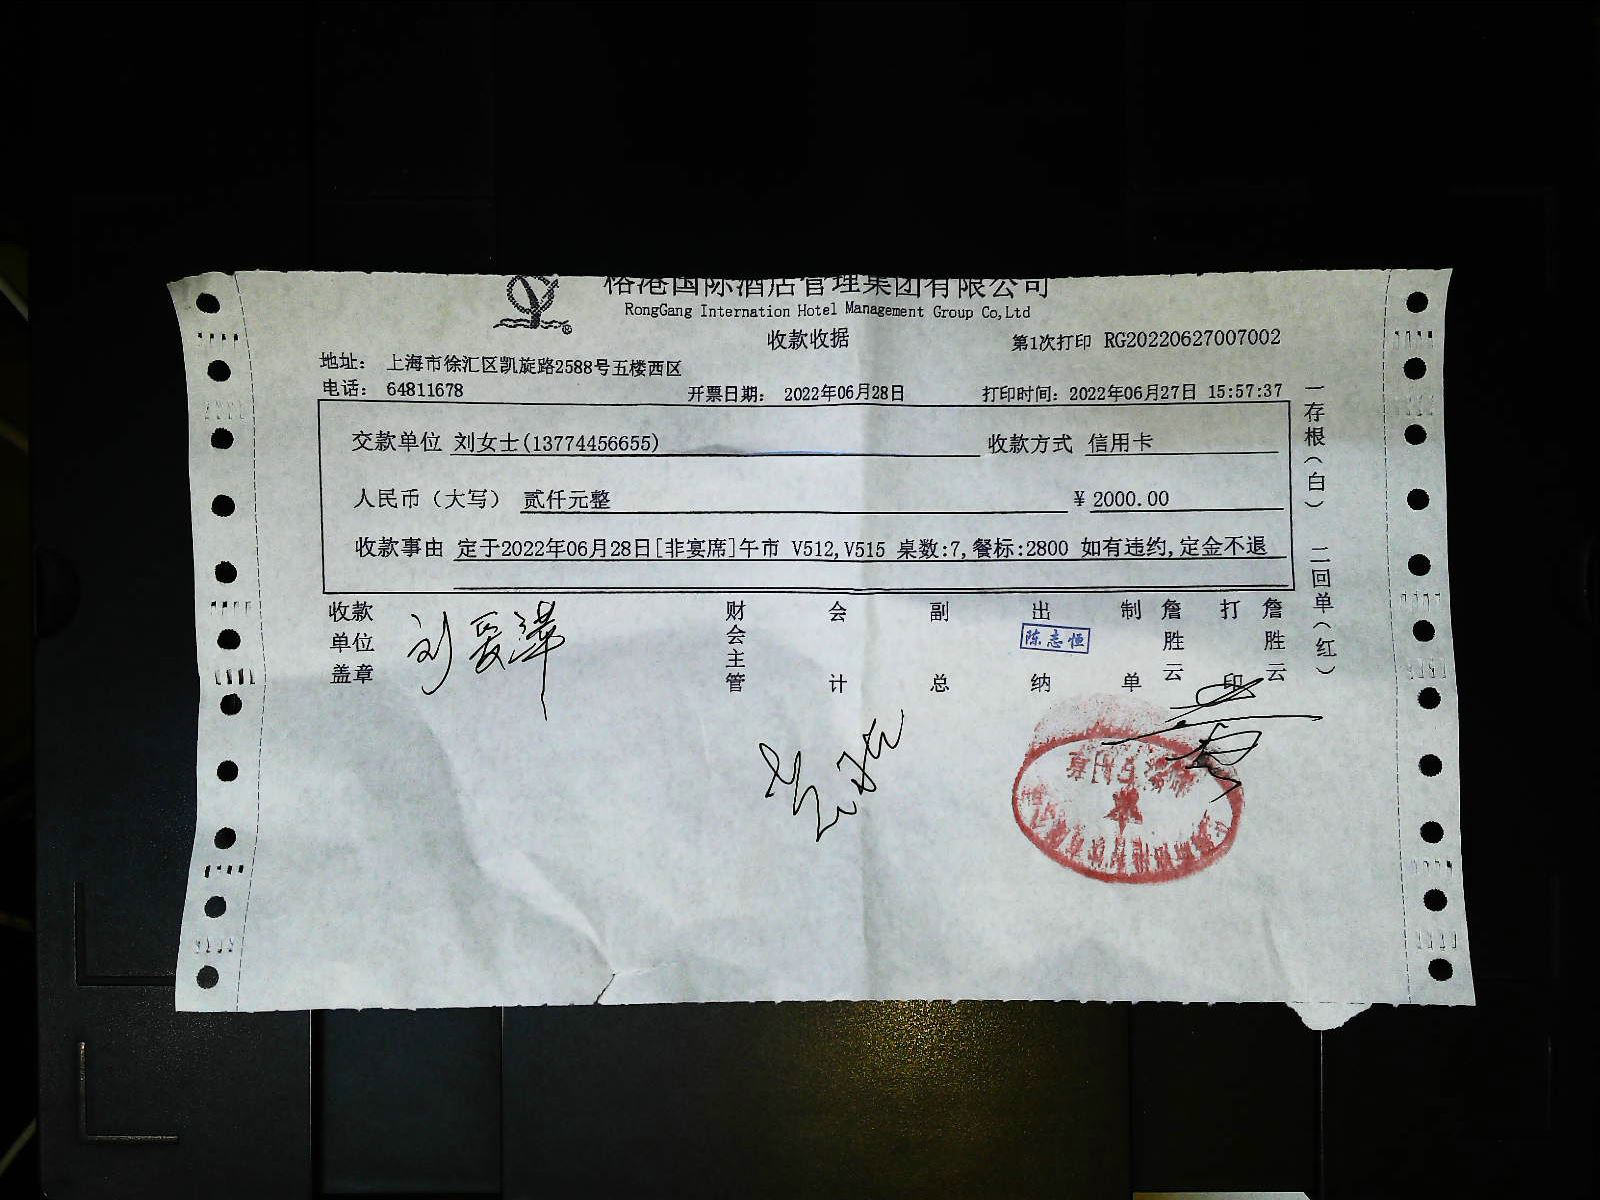 榕港国际酒店管理集团有限公司
RongGang Internation Hotel Management Group Co,Ltd
收款收据
第1次打印 RG20220627007002
地址： 上海市徐汇区凯旋路2588号五楼西区
电话： 64811678 开票日期： 2022年06月28日 打印时间：2022年06月27日 15:57:37
交款单位 刘女士(13774456655) 收款方式 信用卡
人民币（大写） 贰仟元整 ¥ 2000.00
收款事由 定于2022年06月28日[非宴席]午市 V512,V515 桌数:7,餐标:2800 如有违约,定金不退
收款单位盖章
财会主管
会计
副总
出纳
陈志恒
制单
詹胜云
打印
詹胜云
一存根（白） 二回单（红）